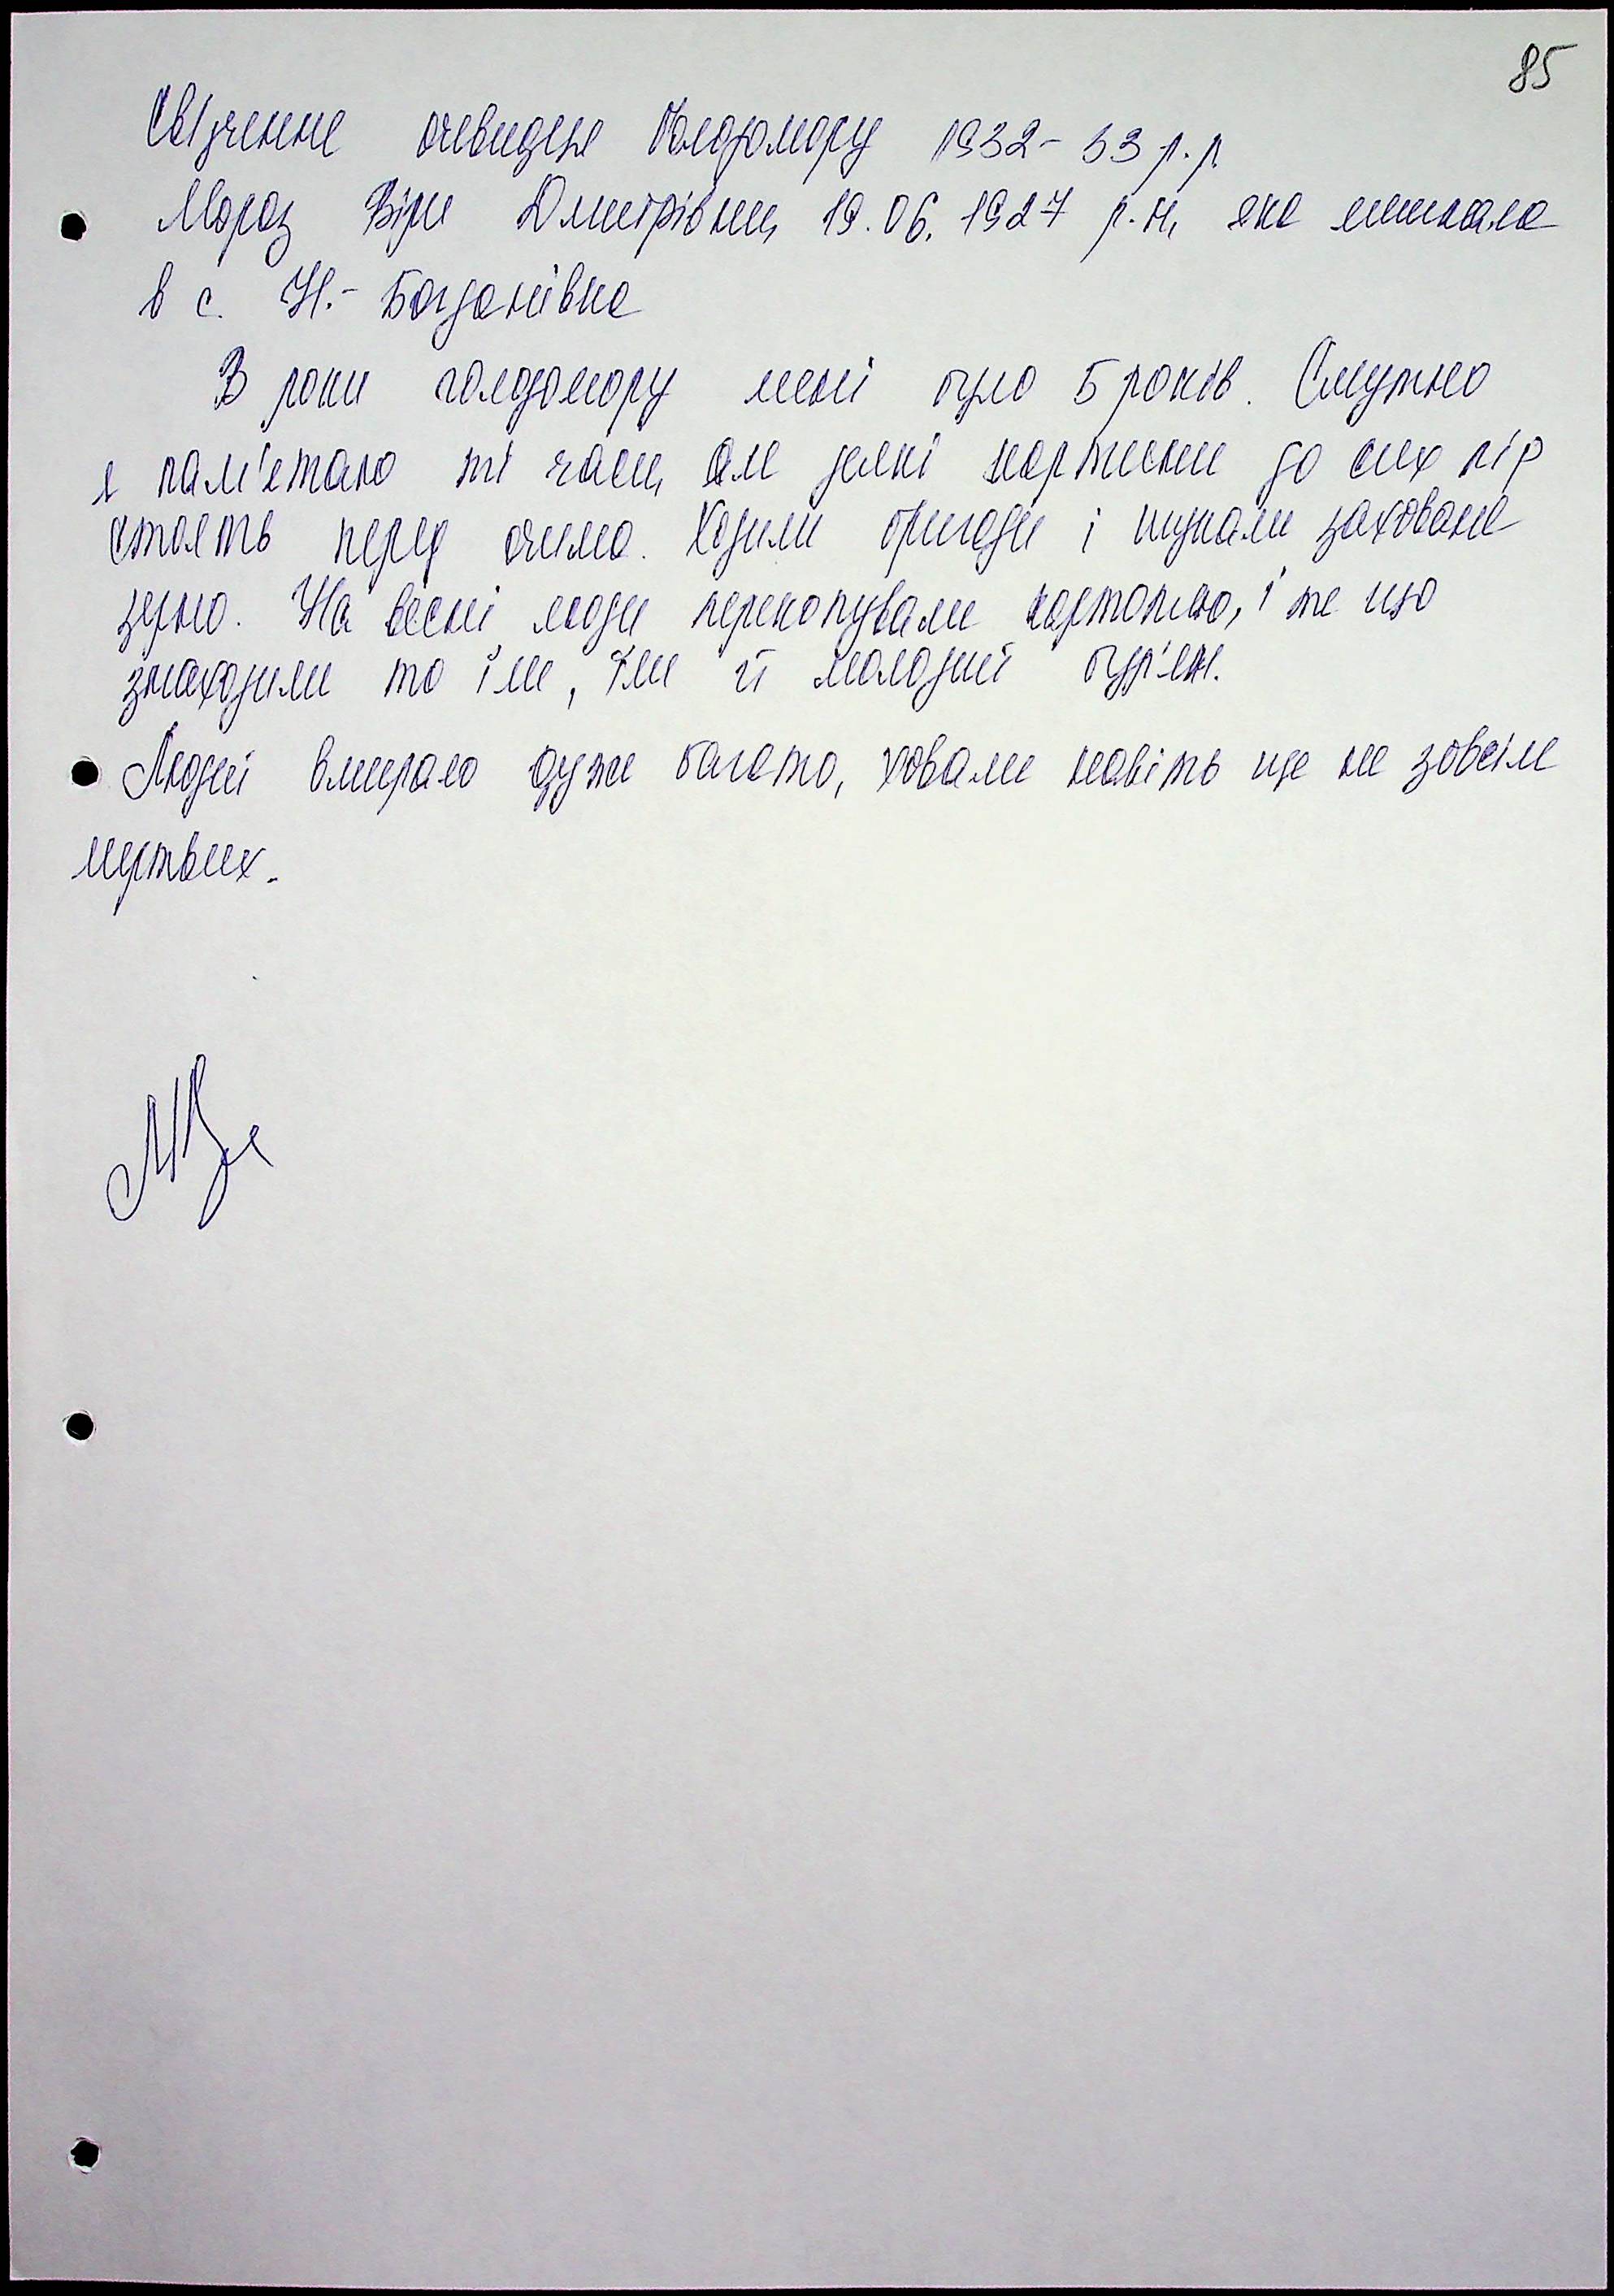 85
Свідчення очевидця Голодомору 1932-33 р.р.
Мороз Віри Дмитрівни, 19.06.1927 р.н, яка мешкала
в с. Н.-Богданівка
В роки голодомору мені було 5 років. Смутно
я пам'ятаю ті часи, але деякі картини до сих пір
стоять перед очима. Ходили бригади і шукали заховане
зерно. На весні люди перекопували картоплю, і те що
знаходили то їли, їли й молодий бур'ян.
Людей вмирало дуже багато, ховали навіть ще не зовсім
мертвих.